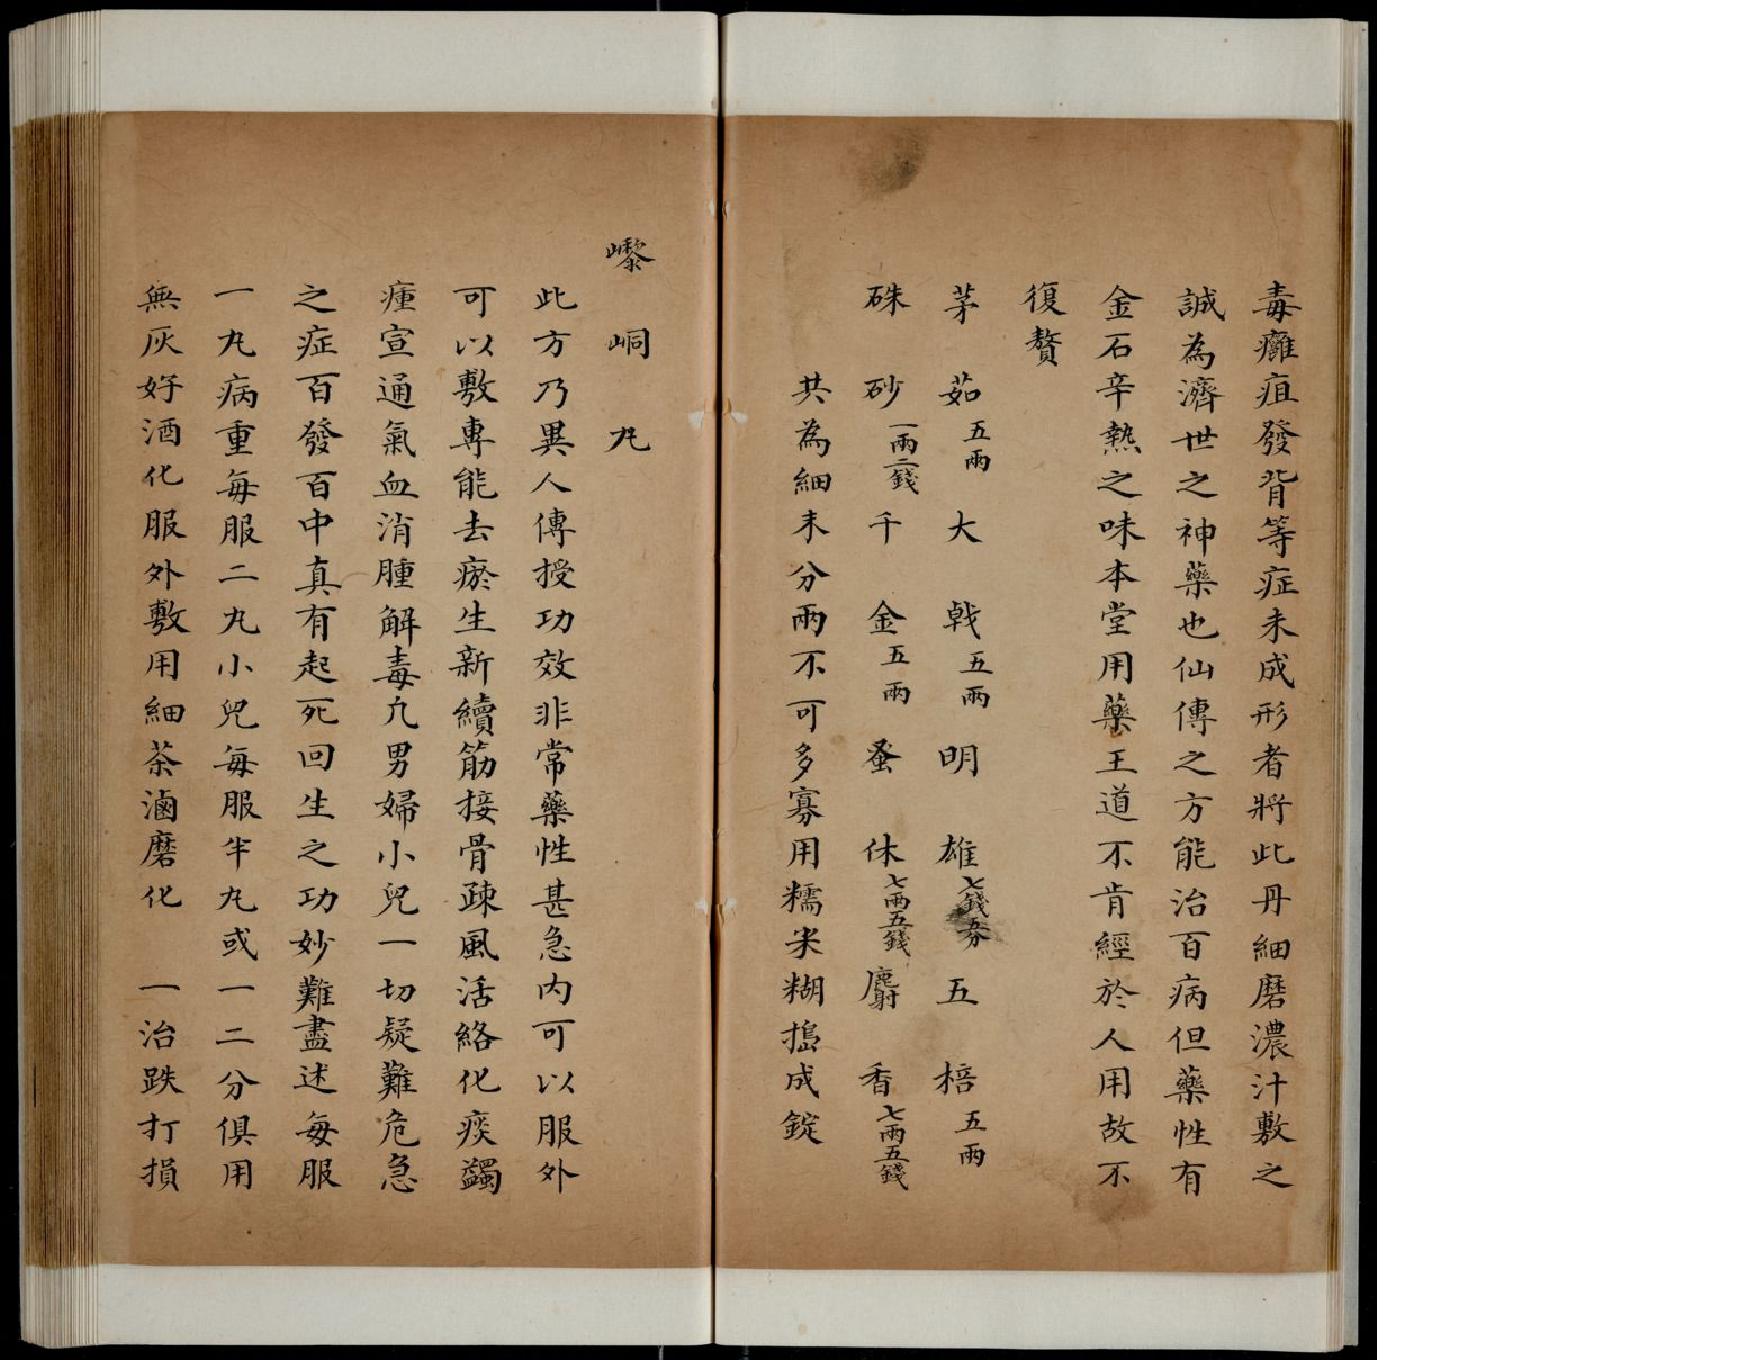 毒癰疽發背等症未成形者將此丹細磨濃汁敷之
誠為濟世之神藥也仙傳之方能治百病但藥性有
金石辛熱之味本堂用藥王道不肯經於人用故不
復贅
茅茹五兩 大戟五兩 明雄七錢五分 五棓五兩
硃砂一兩二錢 千金五兩 蚤休七兩五錢 麝香七兩五錢
共為細末分兩不可多寡用糯米糊搗成錠
嚟峒丸
此方乃異人傳授功效非常藥性甚急内可以服外
可以敷專能去瘀生新續筋接骨疎風活絡化痰蠲
痺宣通氣血消腫解毒凢男婦小兒一切疑難危急
之症百發百中真有起死回生之功妙難盡述每服
一丸病重每服二丸小兒每服半丸或一二分俱用
無灰好酒化服外敷用細茶滷磨化 一治跌打損